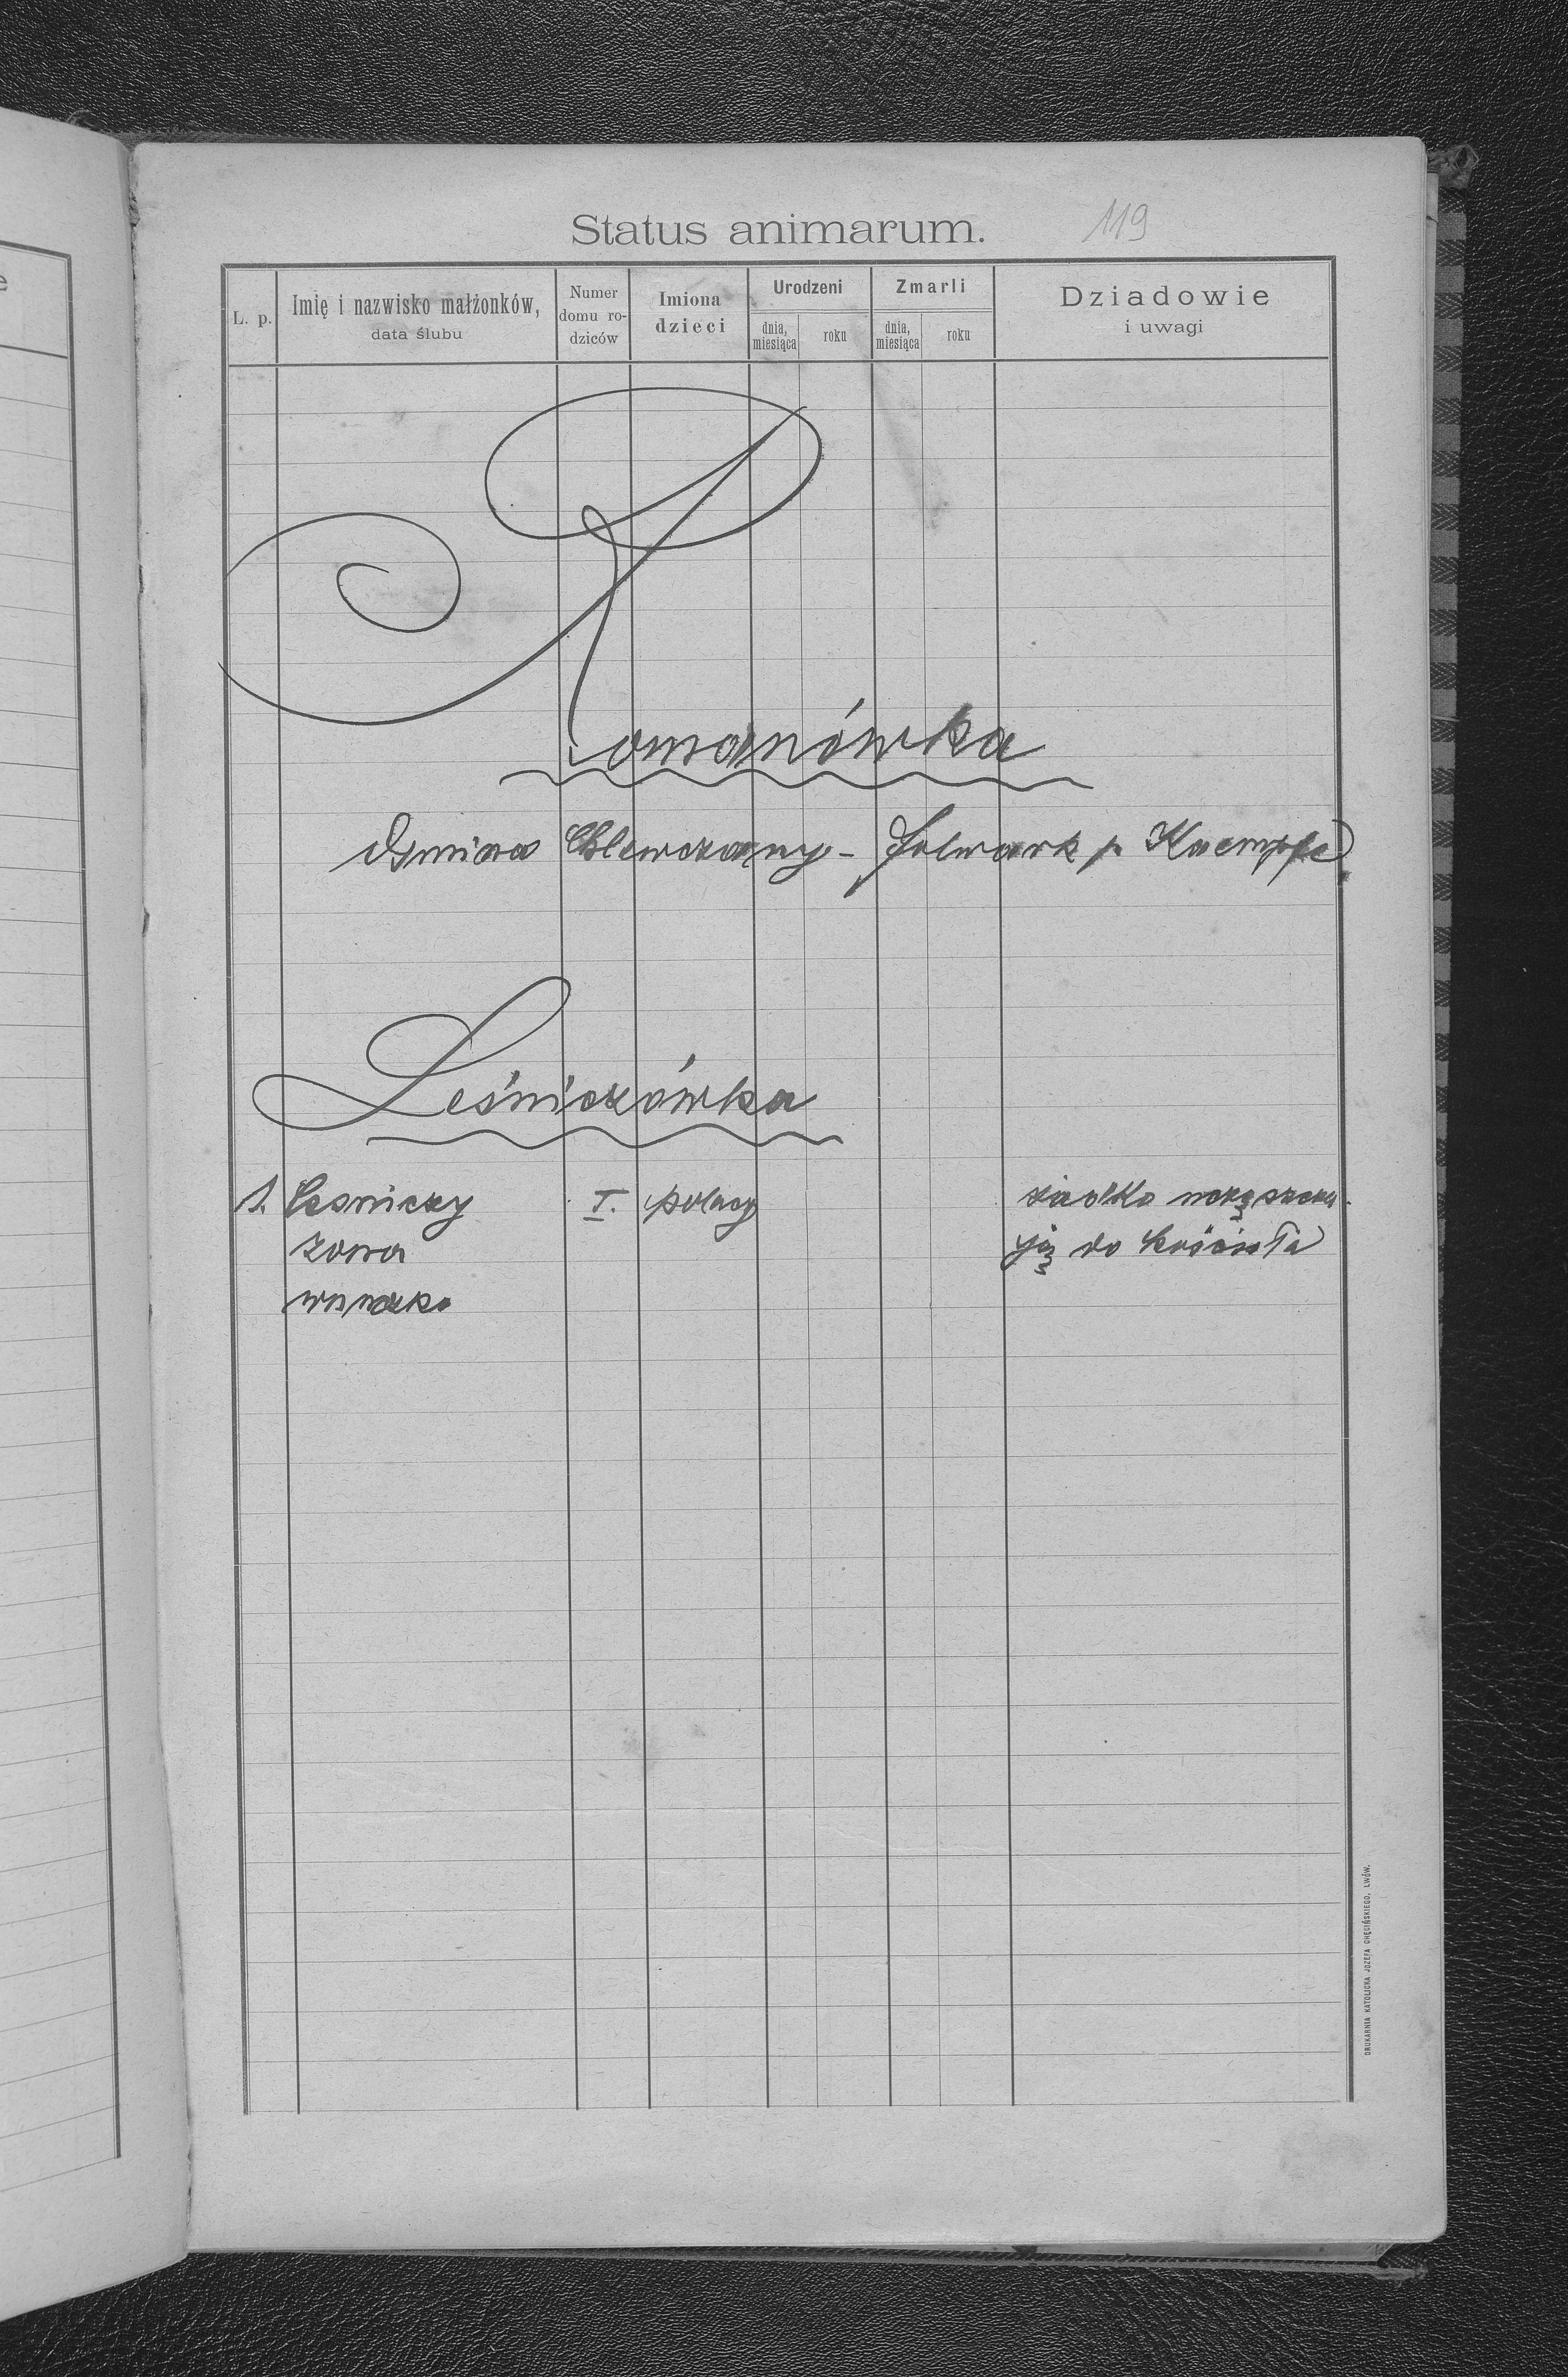 Status animarum. 119
L. p. Imię i nazwisko małżonków, data ślubu Numer domu rodziców Imiona dzieci Urodzeni dnia, miesiąca roku Zmarli dnia, miesiąca roku Dziadowie i uwagi
Romanówka
Gmina Chlewczany - folwark p. Kaempfe
Leśniczówka
1. Leśniczy I. polacy rzadko uczęszcza-
żona ją do kościoła
wnuczka
DRUKARNIA KATOLICKA JÓZEFA CHĘCIŃSKIEGO, LWÓW.